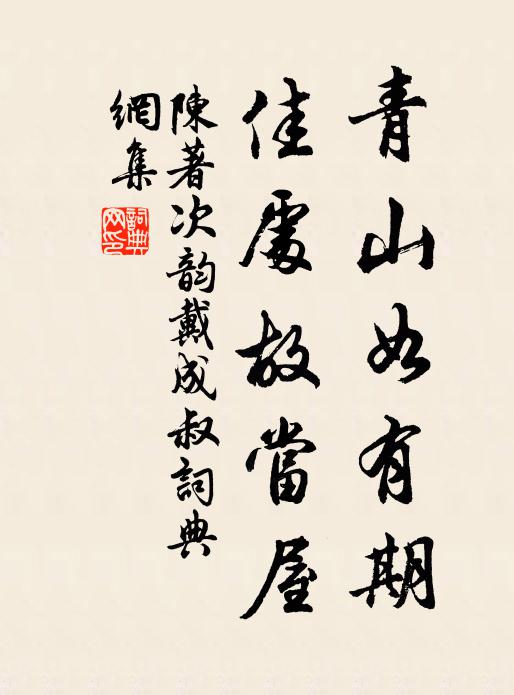 青山如有期
佳處故當屋
陳著次韵戴成叔詞典
網集
詞典網印